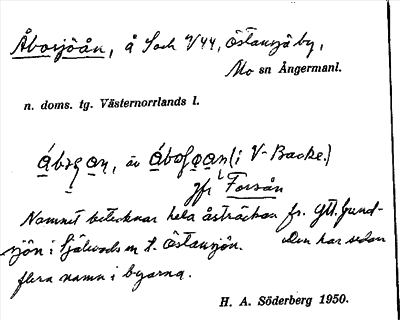 Åbosjöån, å Soch 9/44, Östansjö by,
Mo sn Ångermanl.
n. doms. tg. Västernorrlands l.
(i V-Backe.)
jfr Forsån
Namnet betecknar hela åsträckan fr. Ytt.
sjön i Själevads sn t. Östansjön. Den har sedan
flera namn i byarna.
H. A. Söderberg 1950.